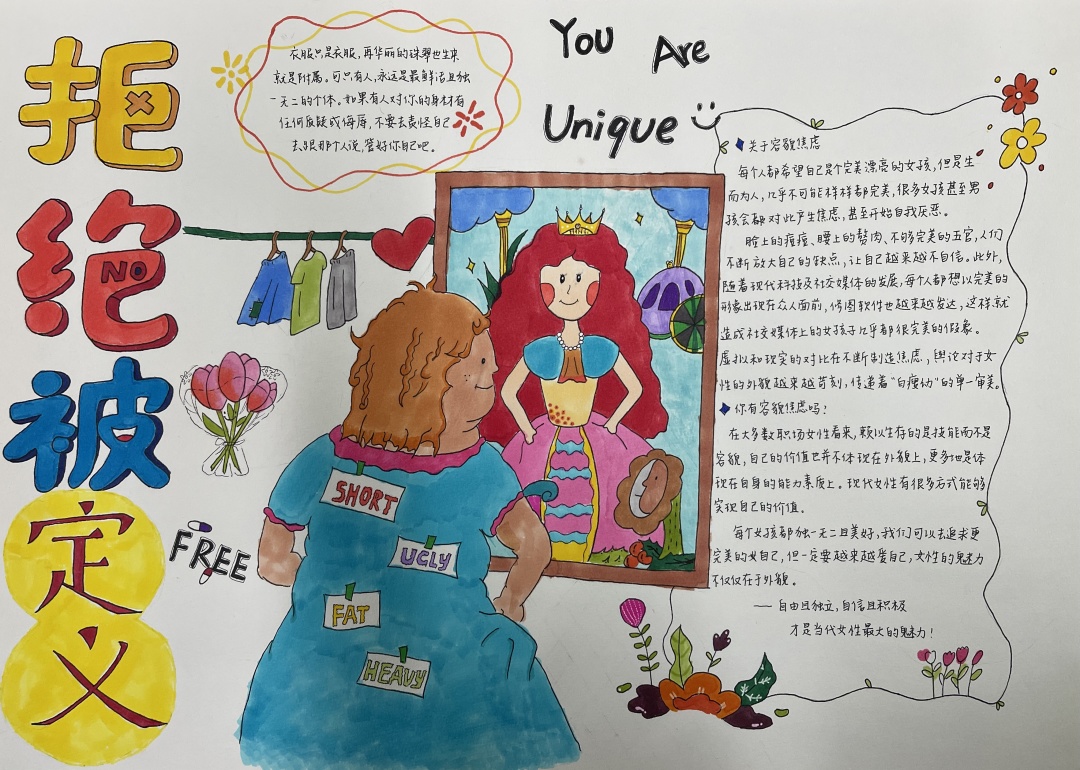 拒
绝
被
定
义
NO
衣服只是衣服,再华丽的珠翠也生来
就是附属。可只有人,永远是最鲜活且独
一无二的个体。如果有人对你的身材有
任何质疑或侮辱,不要去责怪自己
去跟那个人说,管好你自己吧。
You Are
Unique
FREE
SHORT
UGLY
FAT
HEAVY
关于容貌焦虑
每个人都希望自己是个完美漂亮的女孩,但是生
而为人,几乎不可能样样都完美,很多女孩甚至男
孩会对此产生焦虑,甚至开始自我厌恶。
脸上的痘痘、腰上的赘肉、不够完美的五官,人们
不断放大自己的缺点,让自己越来越不自信。此外,
随着现代科技及社交媒体的发展,每个人都想以完美的
形象出现在众人面前,修图软件也越来越发达,这样就
造成社交媒体上的女孩子几乎都很完美的假象。
虚拟和现实的对比在不断制造焦虑,舆论对于女
性的外貌越来越苛刻,传递着“白瘦幼”的单一审美。
你有容貌焦虑吗?
在大多数职场女性看来,赖以生存的是技能而不是
容貌,自己的价值也并不体现在外貌上,更多地是体
现在自身的能力素质上。现代女性有很多方式能够
实现自己的价值。
每个女孩都独一无二且美好,我们可以去追求更
完美的自己,但一定要越来越爱自己,女性的魅力
不仅仅在于外貌。
——自由且独立,自信且积极
才是当代女性最大的魅力!